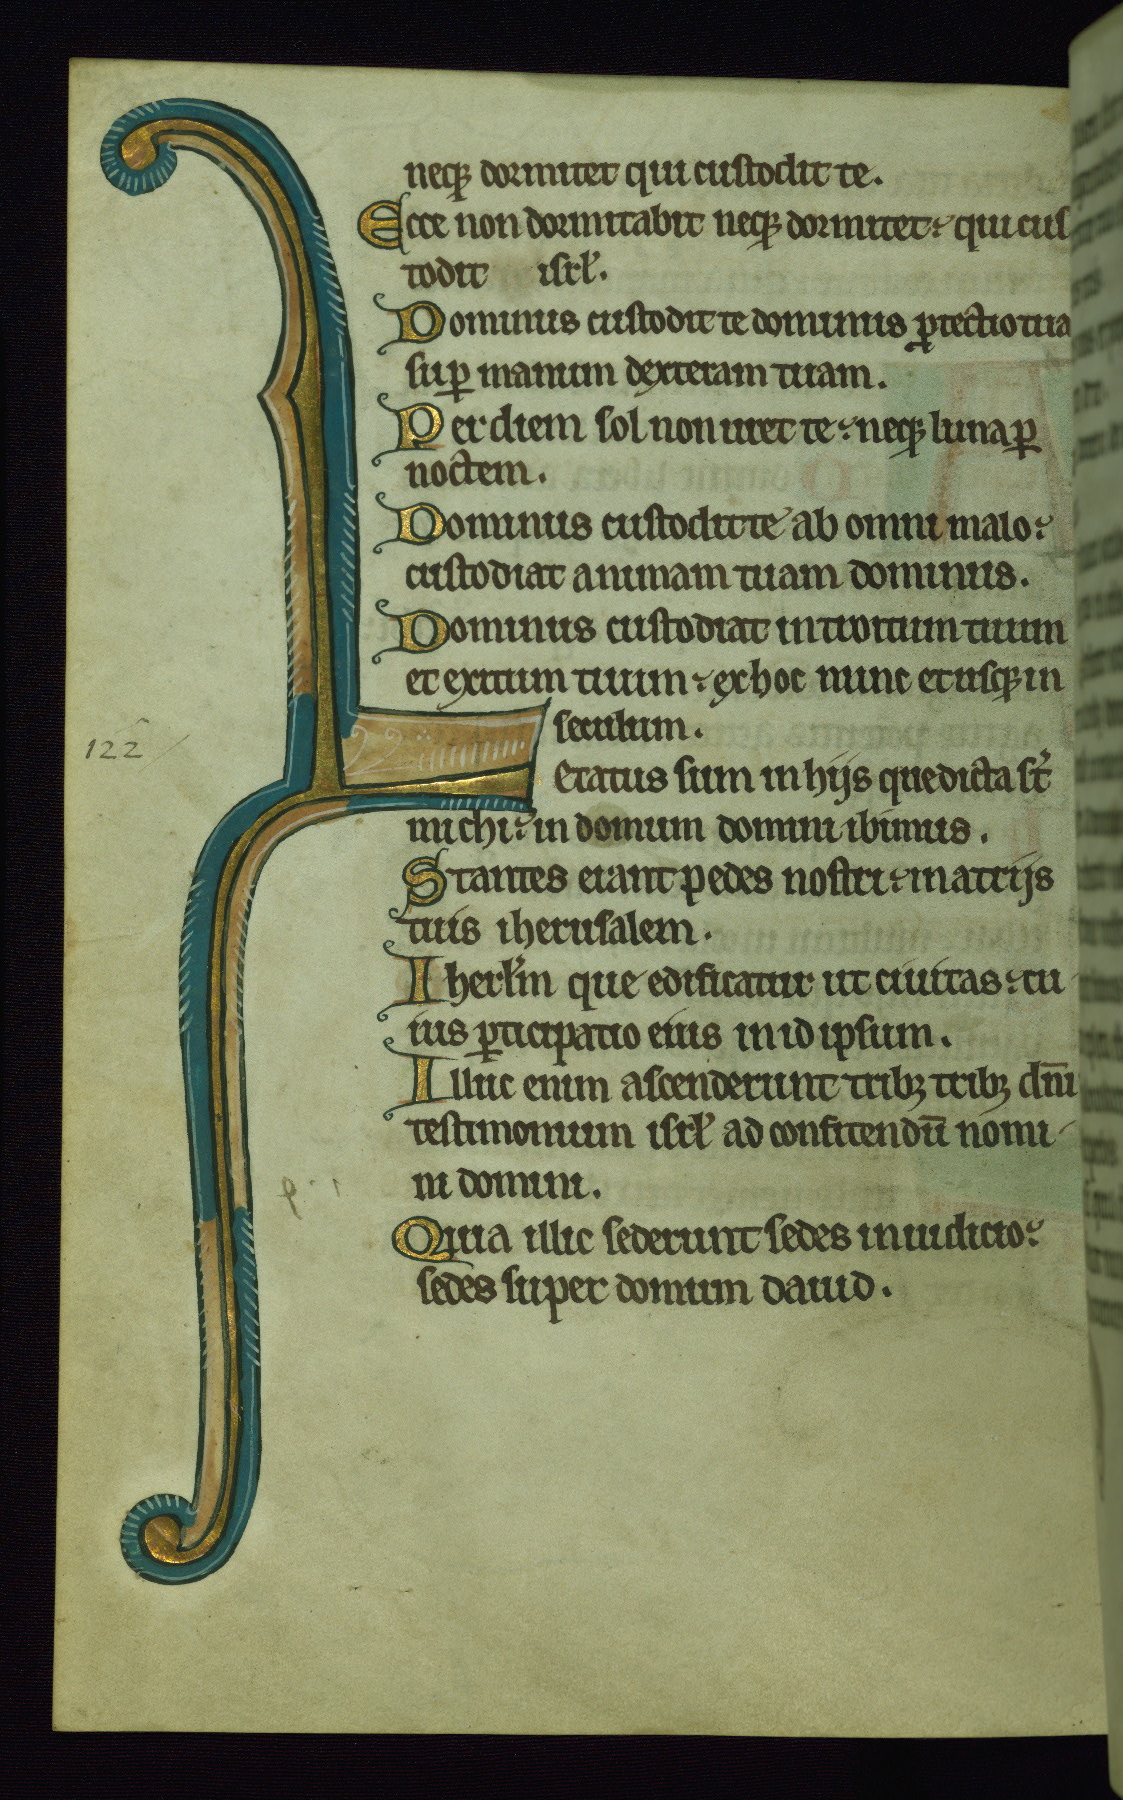 neqꝫ dormitet qui custodit te.
Ecce non dormitabit neqꝫ dormitet: qui cus
todit isrł.
Dominus custodit te dominus ꝓtectio tua
suꝑ manum dexteram tuam.
Per diem sol non uret te: neqꝫ luna ꝑ
noctem.
Dominus custodit te ab omni malo:
custodiat animam tuam dominus.
Dominus custodiat introitum tuum
et exitum tuum: ex hoc nunc et usqꝫ in
seculum.
122
Letatus sum in hijs que dicta st̄
michi: in domum domini ibimus.
Stantes erant pedes nostri: in atrijs
tuis iherusalem.
Iherl̄m que edificatur ut ciuitas: cu
ius ꝑticipatio eius in id ipsum.
Illuc enim ascenderunt tribꝫ tribꝫ dn̄i
testimonium isrł ad confitendū nomi
ni domini.
Quia illic sederunt sedes in iudicio:
sedes super domum dauid.